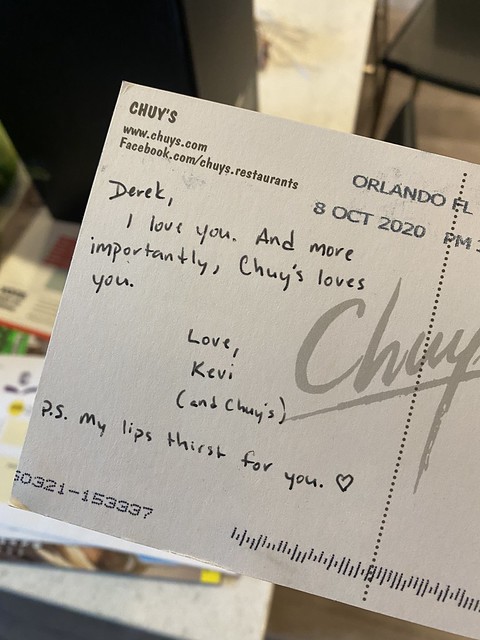 CHUY'S
www.chuys.com
Facebook.com/chuys.restaurants
ORLANDO FL
8 OCT 2020 PM
Derek,
I love you. And more
importantly, Chuy's loves
you.
Love,
Kevi
(and Chuy's)
P.S. My lips thirst for you. ♡
Chuy's
0321-153337